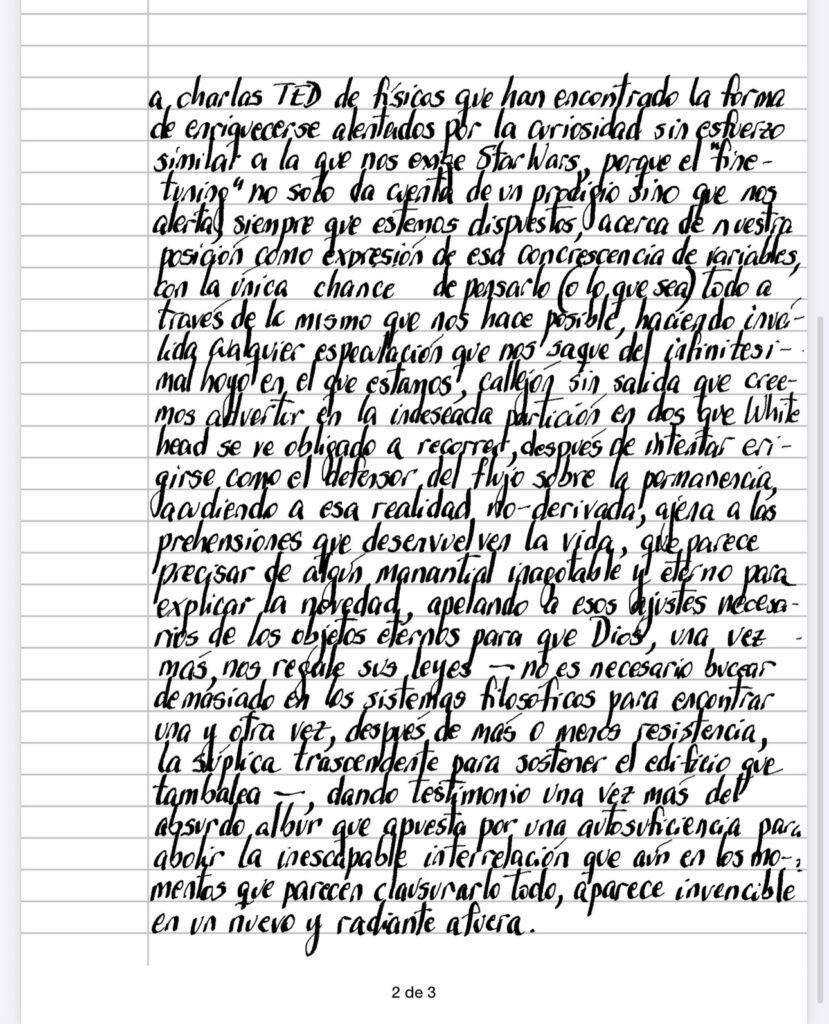 a charlas TED de físicos que han encontrado la forma
de enriquecerse alentados por la curiosidad sin esfuerzo
similar a la que nos exige Star Wars, porque el "fine-
tuning" no solo da cuenta de un prodigio sino que nos
alerta, siempre que estemos dispuestos, acerca de nuestra
posición como expresión de esa concrescencia de variables,
con la única chance de pensarlo (o lo que sea) todo a
través de lo mismo que nos hace posible, haciendo invá-
lida cualquier especulación que nos saque del infinitesi-
mal hoyo en el que estamos, callejón sin salida que cree-
mos advertir en la indeseada partición en dos que White
head se ve obligado a recorrer, después de intentar eri-
girse como el defensor del flujo sobre la permanencia,
acudiendo a esa realidad no-derivada, ajena a las
prehensiones que desenvuelven la vida, que parece
precisar de algún manantial inagotable y eterno para
explicar la novedad, apelando a esos ajustes necesa-
rios de los objetos eternos para que Dios, una vez
más, nos regale sus leyes — no es necesario bucear
demasiado en los sistemas filosóficos para encontrar
una y otra vez, después de más o menos resistencia,
la súplica trascendente para sostener el edificio que
tambalea —, dando testimonio una vez más del
absurdo albur que apuesta por una autosuficiencia para
abolir la inescapable interrelación que aún en los mo-
mentos que parecen clausurarlo todo, aparece invencible
en un nuevo y radiante afuera.
2 de 3